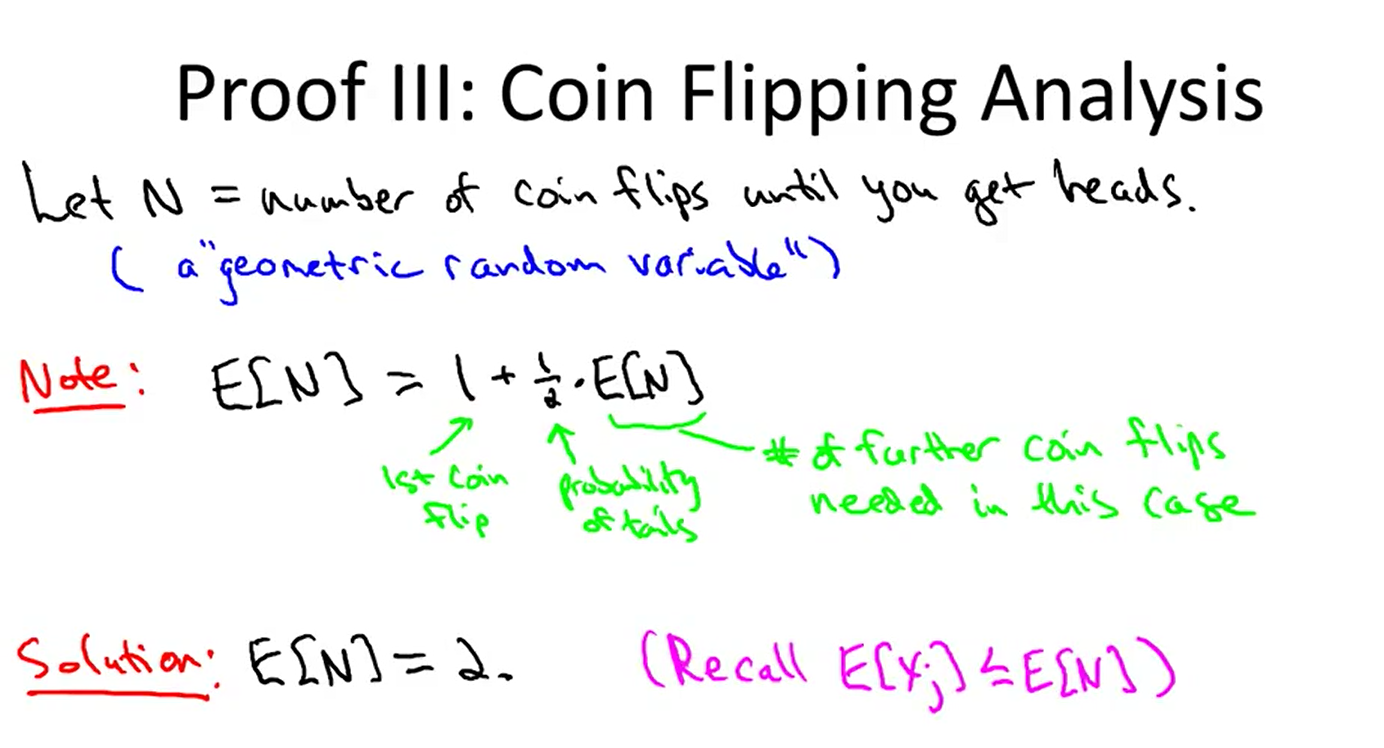 Proof III: Coin Flipping Analysis
Let N = number of coin flips until you get heads.
( a "geometric random variable")
Note: E[N] = 1 + 1/2 · E[N]
1st coin flip
probability of tails
# of further coin flips
needed in this case
Solution: E[N] = 2. (Recall E[Xj] ≤ E[N])